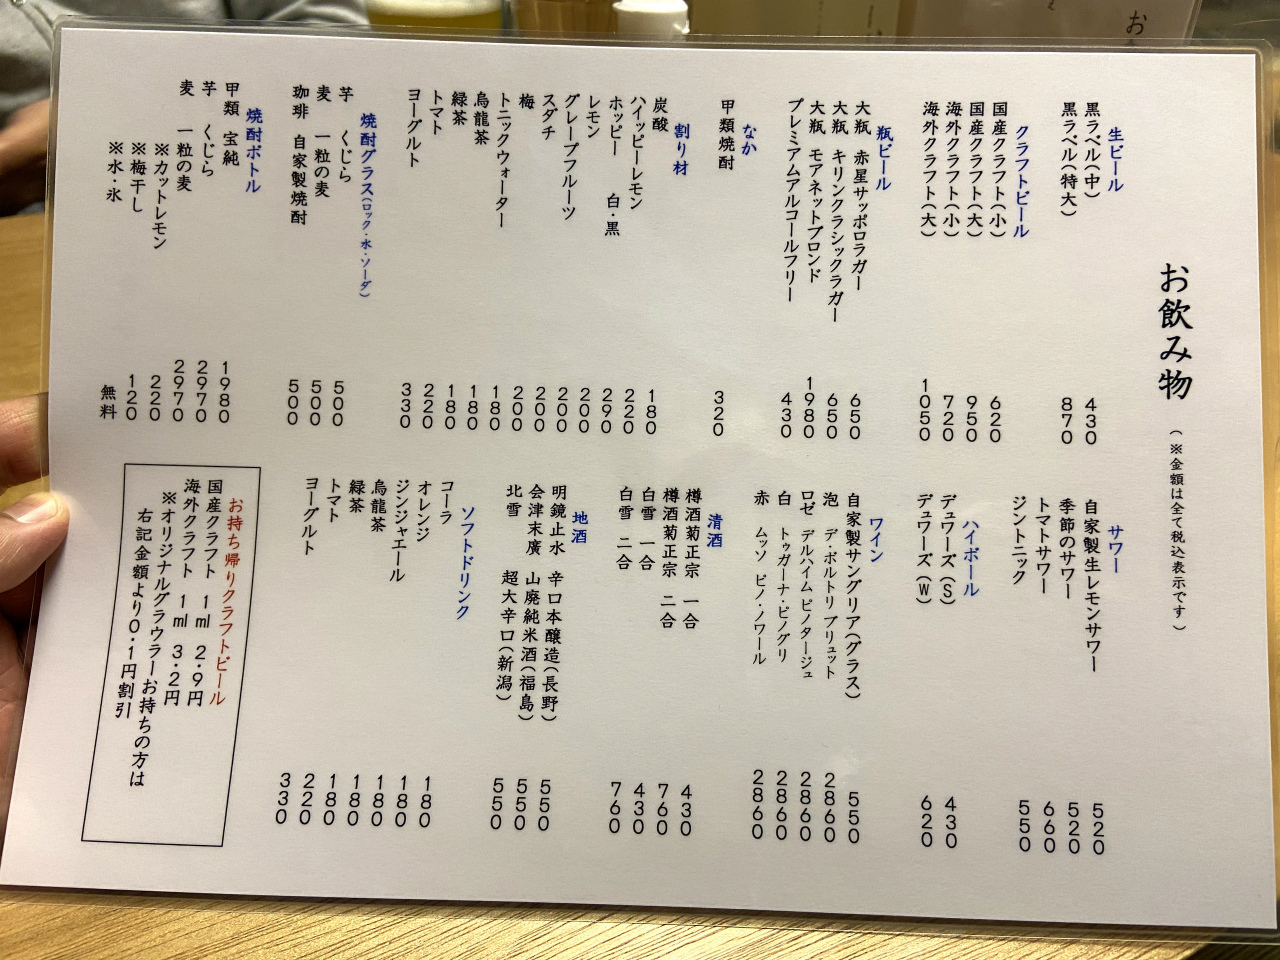 お
お飲み物 (※金額は全て税込表示です)
生ビール
黒ラベル(中) 430
黒ラベル(特大) 870
クラフトビール
国産クラフト(小) 620
国産クラフト(大) 950
海外クラフト(小) 720
海外クラフト(大) 1050
瓶ビール
大瓶 赤星サッポロラガー 650
大瓶 キリンクラシックラガー 650
大瓶 モアネットブロンド 1980
プレミアムアルコールフリー 430
なか
甲類焼酎 320
割り材
炭酸 180
ハイッピーレモン 220
ホッピー 白・黒 290
レモン 200
グレープフルーツ 200
スダチ 200
梅 200
トニックウォーター 180
烏龍茶 180
緑茶 180
トマト 220
ヨーグルト 330
焼酎グラス(ロック・水・ソーダ)
芋 くじら 500
麦 一粒の麦 500
珈琲 自家製焼酎 500
焼酎ボトル
甲類 宝純 1980
芋 くじら 2970
麦 一粒の麦 2970
※カットレモン 220
※梅干し 120
※水・氷 無料
サワー
自家製生レモンサワー 520
季節のサワー 520
トマトサワー 660
ジントニック 550
ハイボール
デュワーズ(S) 430
デュワーズ(W) 620
ワイン
自家製サングリア(グラス) 550
泡 デ・ボルトリ ブリュット 2860
ロゼ デルハイム ピノタージュ 2860
白 トゥガーナ・ピノグリ 2860
赤 ムッソ ピノ・ノワール 2860
清酒
樽酒菊正宗 一合 430
樽酒菊正宗 二合 760
白雪 一合 430
白雪 二合 760
地酒
明鏡止水 辛口本醸造(長野) 550
会津末廣 山廃純米酒(福島) 550
北雪 超大辛口(新潟) 550
ソフトドリンク
コーラ 180
オレンジ 180
ジンジャエール 180
烏龍茶 180
緑茶 180
トマト 220
ヨーグルト 330
お持ち帰りクラフトビール
国産クラフト 1ml 2.9円
海外クラフト 1ml 3.2円
※オリジナルグラウラーお持ちの方は
右記金額より0.1円割引